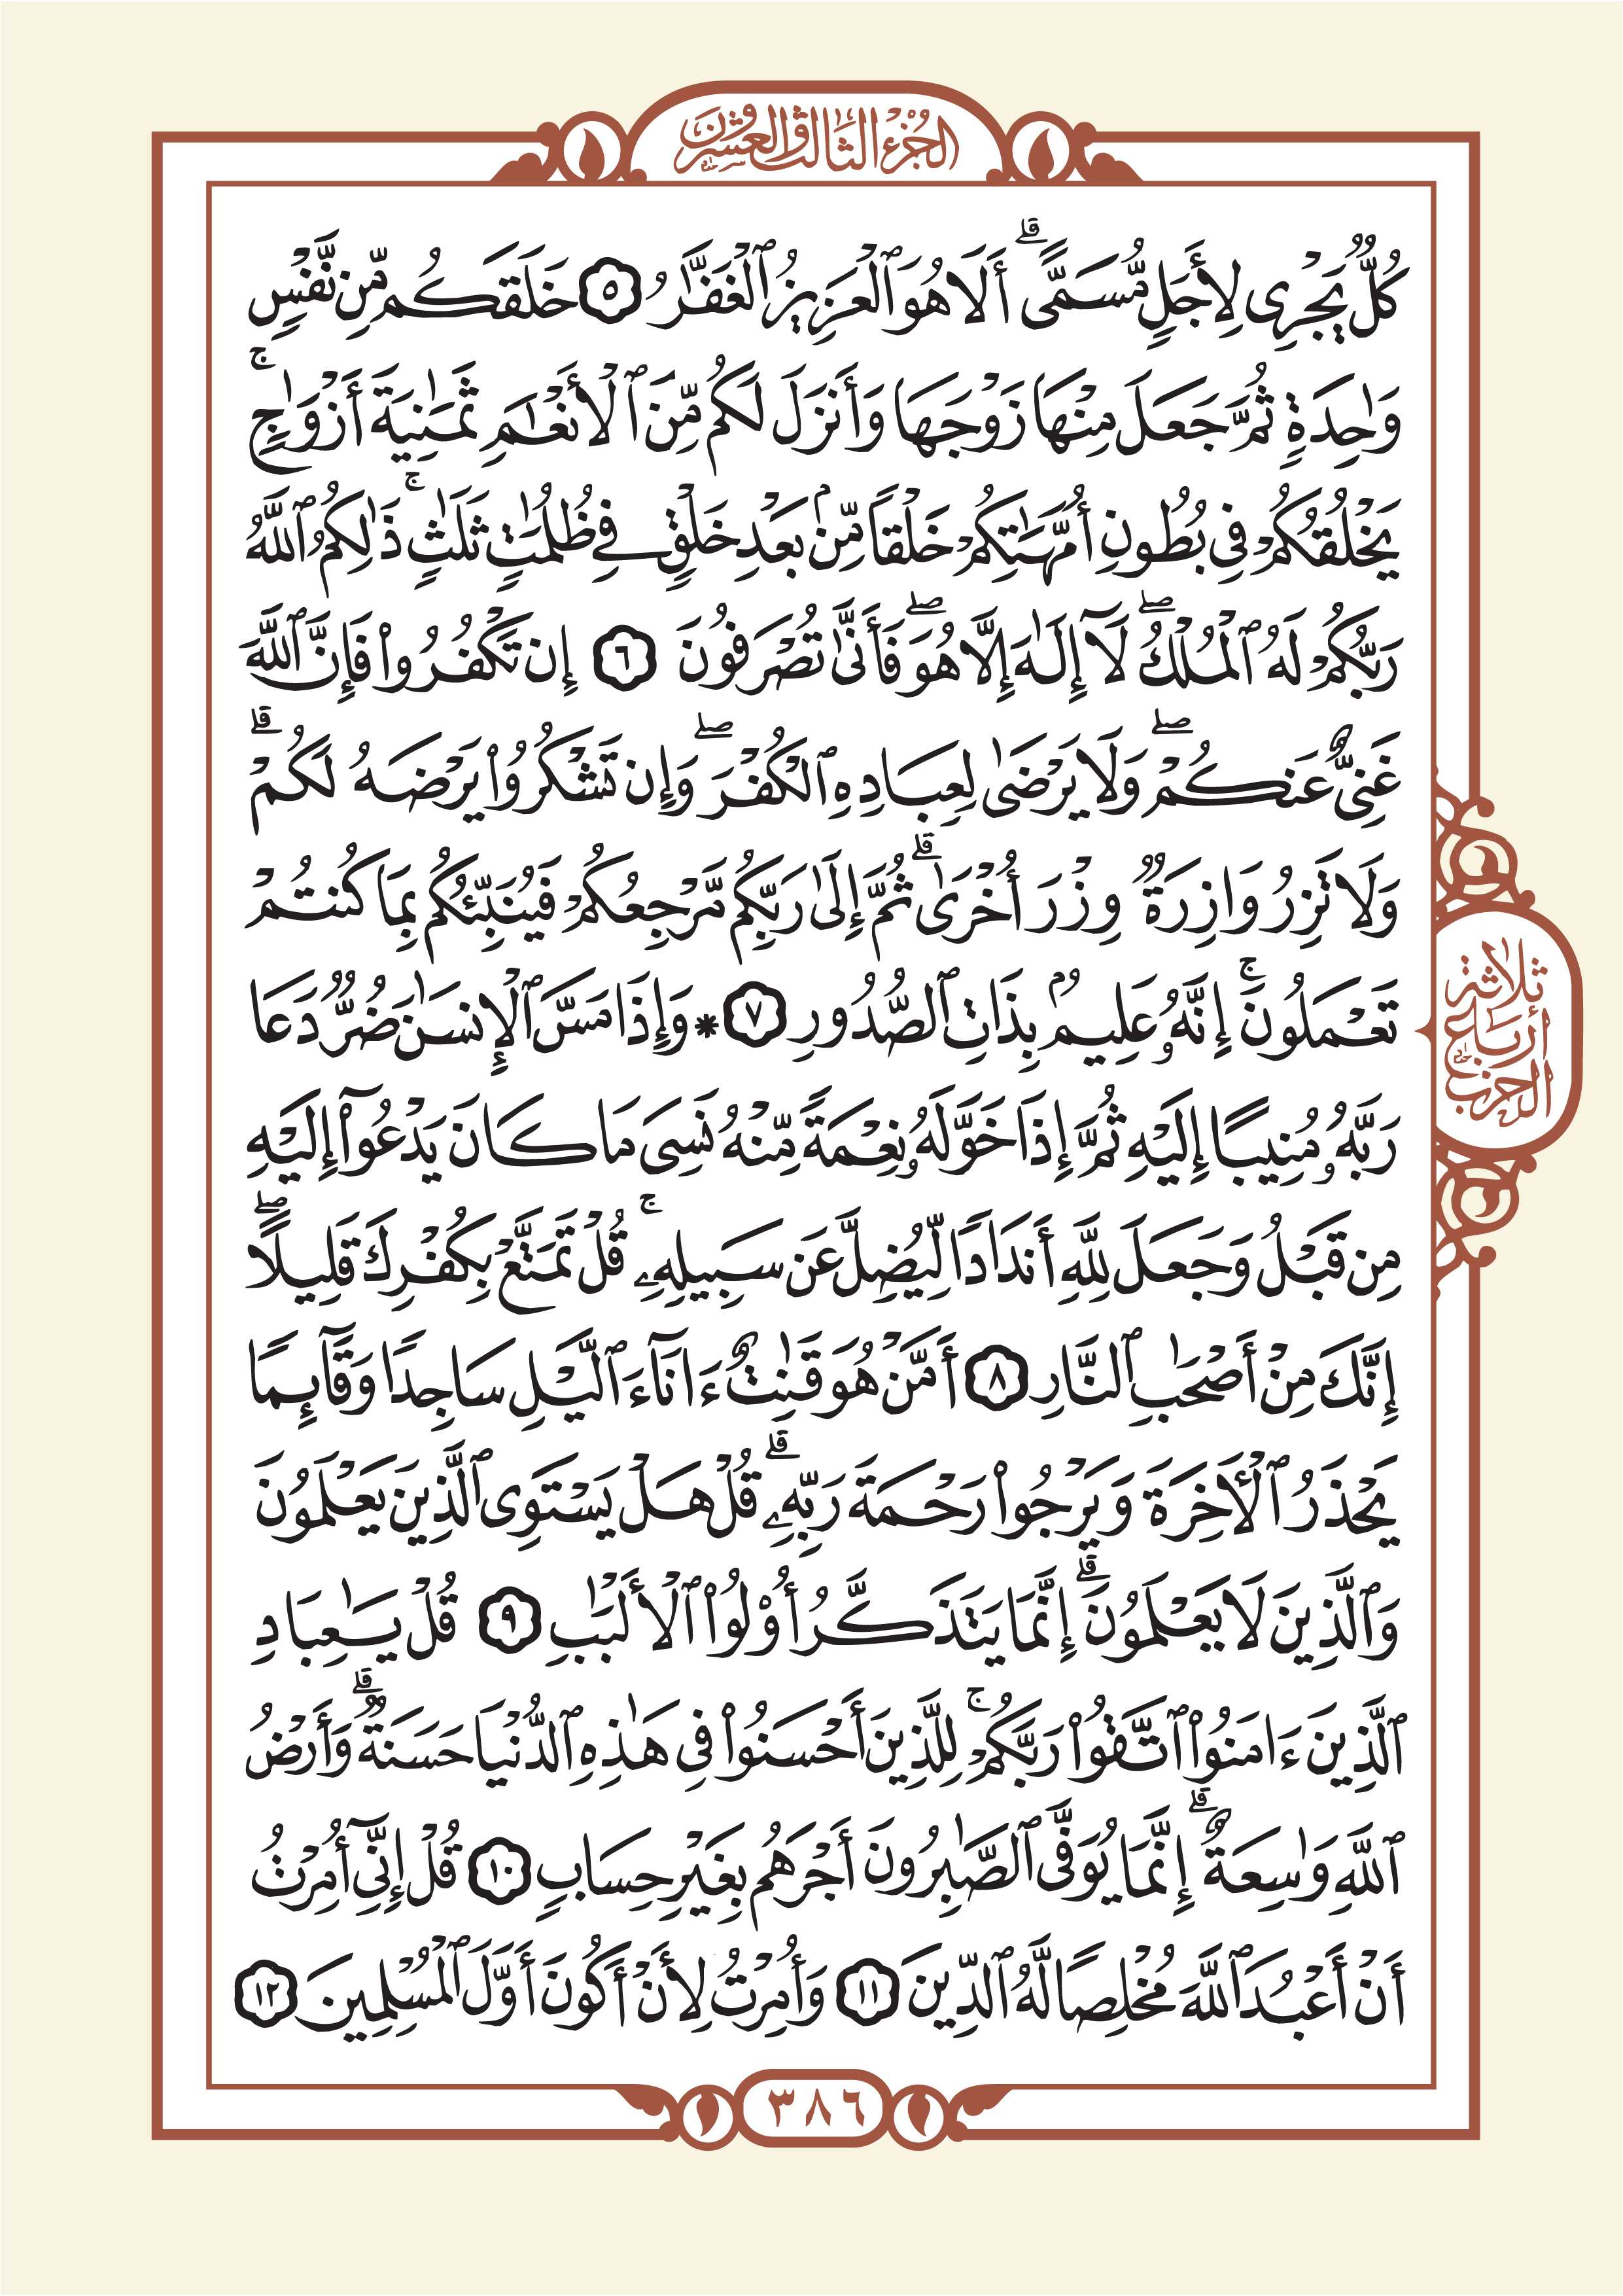 الجزء الثالث والعشرون
كُلٌّ يَجْرِى لِأَجَلٍ مُّسَمًّى ۗ أَلَا هُوَ ٱلْعَزِيزُ ٱلْغَفَّٰرُ ٥ خَلَقَكُم مِّن نَّفْسٍ
وَٰحِدَةٍ ثُمَّ جَعَلَ مِنْهَا زَوْجَهَا وَأَنزَلَ لَكُم مِّنَ ٱلْأَنْعَٰمِ ثَمَٰنِيَةَ أَزْوَٰجٍ ۚ
يَخْلُقُكُمْ فِى بُطُونِ أُمَّهَٰتِكُمْ خَلْقًا مِّنۢ بَعْدِ خَلْقٍ فِى ظُلُمَٰتٍ ثَلَٰثٍ ۚ ذَٰلِكُمُ ٱللَّهُ
رَبُّكُمْ لَهُ ٱلْمُلْكُ ۖ لَآ إِلَٰهَ إِلَّا هُوَ ۖ فَأَنَّىٰ تُصْرَفُونَ ٦ إِن تَكْفُرُوا۟ فَإِنَّ ٱللَّهَ
غَنِىٌّ عَنكُمْ ۖ وَلَا يَرْضَىٰ لِعِبَادِهِ ٱلْكُفْرَ ۖ وَإِن تَشْكُرُوا۟ يَرْضَهُ لَكُمْ ۗ
وَلَا تَزِرُ وَازِرَةٌ وِزْرَ أُخْرَىٰ ۗ ثُمَّ إِلَىٰ رَبِّكُم مَّرْجِعُكُمْ فَيُنَبِّئُكُم بِمَا كُنتُمْ
تَعْمَلُونَ ۚ إِنَّهُۥ عَلِيمٌۢ بِذَاتِ ٱلصُّدُورِ ٧ * وَإِذَا مَسَّ ٱلْإِنسَٰنَ ضُرٌّ دَعَا
رَبَّهُۥ مُنِيبًا إِلَيْهِ ثُمَّ إِذَا خَوَّلَهُۥ نِعْمَةً مِّنْهُ نَسِىَ مَا كَانَ يَدْعُوٓا۟ إِلَيْهِ
مِن قَبْلُ وَجَعَلَ لِلَّهِ أَندَادًا لِّيُضِلَّ عَن سَبِيلِهِۦ ۚ قُلْ تَمَتَّعْ بِكُفْرِكَ قَلِيلًا ۖ
إِنَّكَ مِنْ أَصْحَٰبِ ٱلنَّارِ ٨ أَمَّنْ هُوَ قَٰنِتٌ ءَانَآءَ ٱلَّيْلِ سَاجِدًا وَقَآئِمًا
يَحْذَرُ ٱلْـَٔاخِرَةَ وَيَرْجُوا۟ رَحْمَةَ رَبِّهِۦ ۗ قُلْ هَلْ يَسْتَوِى ٱلَّذِينَ يَعْلَمُونَ
وَٱلَّذِينَ لَا يَعْلَمُونَ ۗ إِنَّمَا يَتَذَكَّرُ أُو۟لُوا۟ ٱلْأَلْبَٰبِ ٩ قُلْ يَٰعِبَادِ
ٱلَّذِينَ ءَامَنُوا۟ ٱتَّقُوا۟ رَبَّكُمْ ۚ لِلَّذِينَ أَحْسَنُوا۟ فِى هَٰذِهِ ٱلدُّنْيَا حَسَنَةٌ ۗ وَأَرْضُ
ٱللَّهِ وَٰسِعَةٌ ۗ إِنَّمَا يُوَفَّى ٱلصَّٰبِرُونَ أَجْرَهُم بِغَيْرِ حِسَابٍ ١٠ قُلْ إِنِّىٓ أُمِرْتُ
أَنْ أَعْبُدَ ٱللَّهَ مُخْلِصًا لَّهُ ٱلدِّينَ ١١ وَأُمِرْتُ لِأَنْ أَكُونَ أَوَّلَ ٱلْمُسْلِمِينَ ١٢
ثلاثة
أرباع
الحزب
٣٨٦